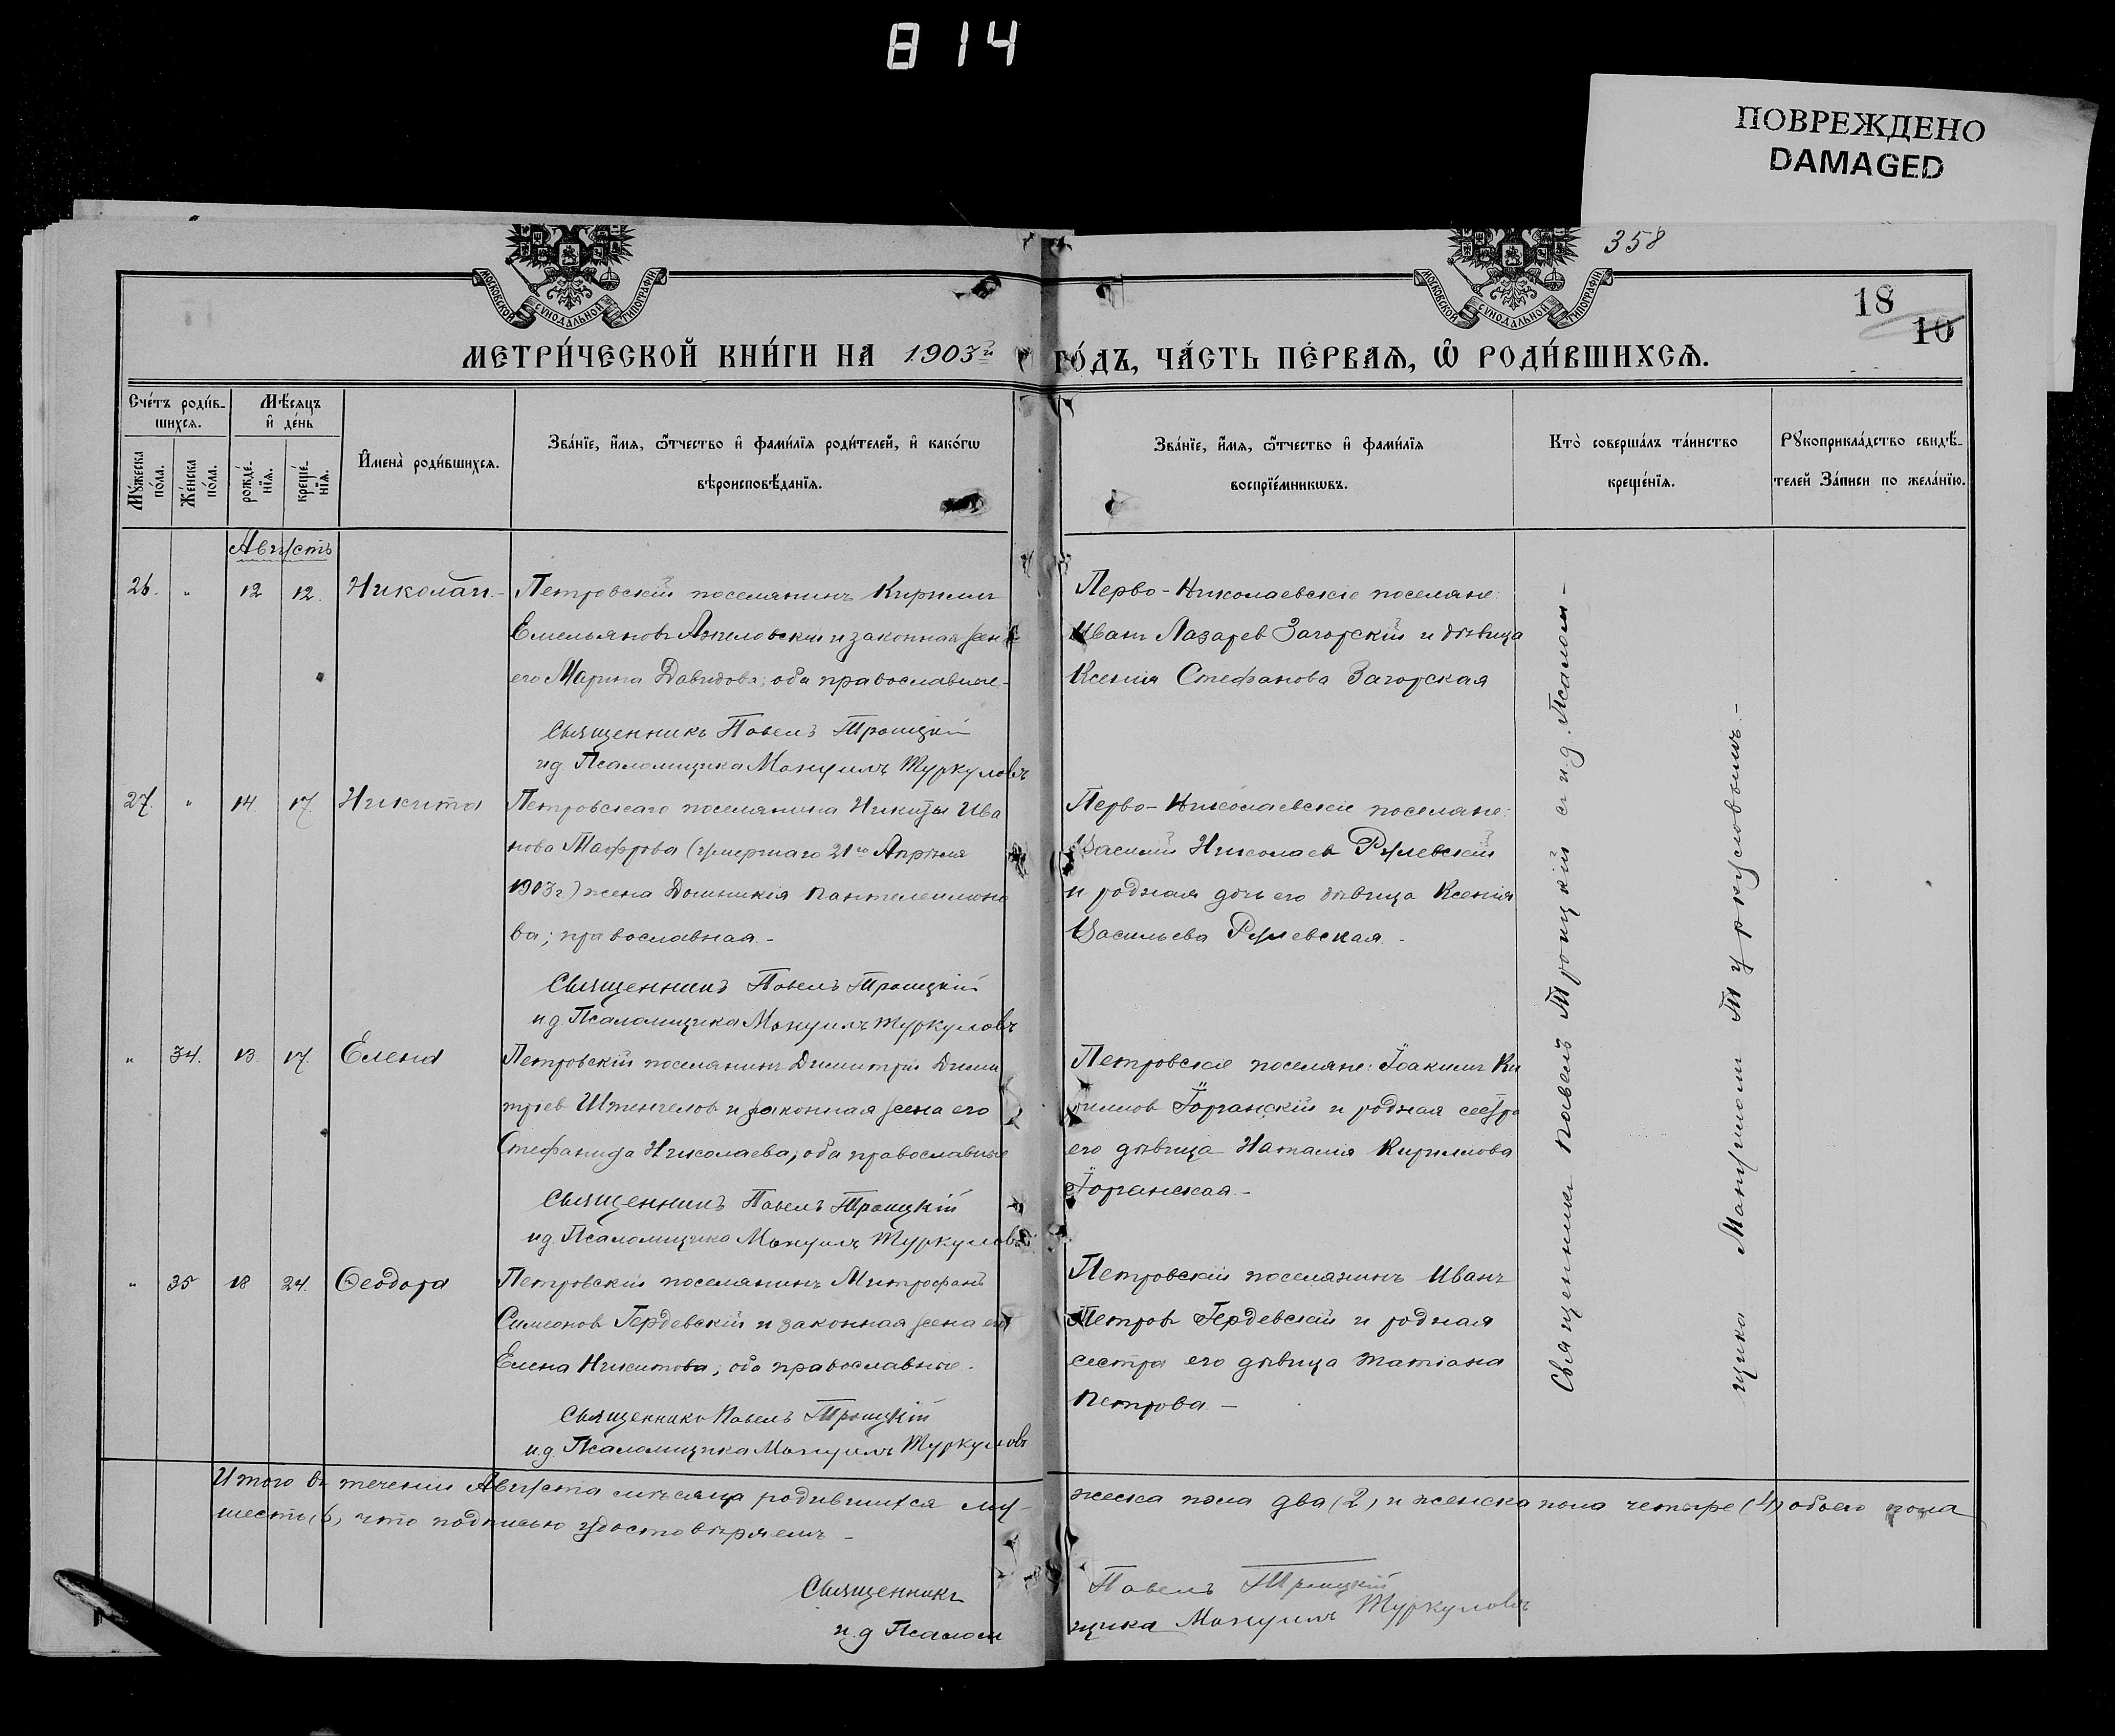 814
ПОВРЕЖДЕНО
DAMAGED
358
18
10
МОСКОВСКОЙ СѴНОДАЛЬНОЙ ТИПОГРАФІИ
МОСКОВСКОЙ СѴНОДАЛЬНОЙ ТИПОГРАФІИ
МЕТРИ́ЧЕСКОЙ КНИ́ГИ НА 1903й ГО́ДЪ, ЧА́СТЬ ПЕ́РВАѦ, Ѡ҆ РОДИ́ВШИХСѦ.
Сче́тъ роди́в-
шихсѧ.
Мѣ́сѧцъ
и҆ де́нь
Мꙋ́жеска
по́ла.
Же́нска
по́ла.
рожде́-
нїѧ.
креще́-
нїѧ.
И҆мена̀ роди́вшихсѧ.
Зва́нїе, и҆́мѧ, ѻ҆́тчество и҆ фами́лїѧ роди́телей, и҆ како́гѡ
вѣроисповѣ́данїѧ.
Зва́нїе, и҆́мѧ, ѻ҆́тчество и҆ фами́лїѧ
воспрїе́мникѡвъ.
Кто̀ соверша́лъ та́инство
креще́нїѧ.
Рꙋкоприкла́дство свидѣ́-
телей За́писи по жела́нїю.
Августъ
26. " 12 12. Николай.- Петровскій поселянинъ Кириллъ
Емельяновъ и законная жена
его Марина Давидова; оба православные.-
Священникъ Павелъ Троицкій
и.д. Псаломщика Мануилъ Туркуловъ
Перво-Николаевскіе поселяне:
Иванъ Лазаревъ Загорскій и дѣвица
Ксенія Стефанова Загорская
27. " 14. 17. Никита Петровскаго поселянина Никиты Ива
нова (умершаго 21го Апрѣля
1903 г.) жена Домникія Пантелеимоно
ва; православная.-
Священникъ Павелъ Троицкій
и.д. Псаломщика Мануилъ Туркуловъ
Перво-Николаевскіе поселяне:
Василій Николаевъ Рулевскій
и родная дочь его дѣвица Ксенія
Васильева Рулевская.-
" 34. 13. 17. Елена Петровскій поселянинъ Димитрій Дими
тріев и законная жена его
Стефанида Николаева; оба православные
Священникъ Павелъ Троицкій
и.д. Псаломщика Мануилъ Туркуловъ
Петровскіе поселяне: Іоакимъ Ки
рилловъ Горганскій и родная сестра
его дѣвица Наталія Кириллова
Горганская.-
" 35 18 24. Ѳеодора Петровскій поселянинъ Митрофанъ
Симеоновъ Гердевскій и законная жена его
Елена Никитова; оба православные.-
Священникъ Павелъ Троицкій
и.д. Псаломщика Мануилъ Туркуловъ
Петровскій поселянинъ Иванъ
Петровъ Гердевскій и родная
сестра его дѣвица Татіана
Петрова.-
Священникъ Павелъ Троицкій съ и.д. Псалом-
щика Мануиломъ Туркуловымъ.-
Итого въ теченіи Августа мѣсяца родившихся му-
жеска пола два (2) и женска пола четыре (4) обоего пола
шесть (6), что подписью удостовѣряемъ -
Священникъ Павелъ Троицкій
и.д Псаломщика Мануилъ Туркуловъ